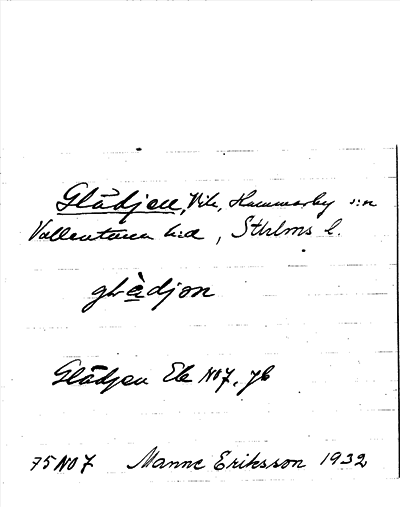 Glädjen, Vik, Hammarby s:n
Vallentuna h:d, Sthlms l.
glàdjon
Glädjen Ek NO7, jb
75NO7 Manne Eriksson 1932